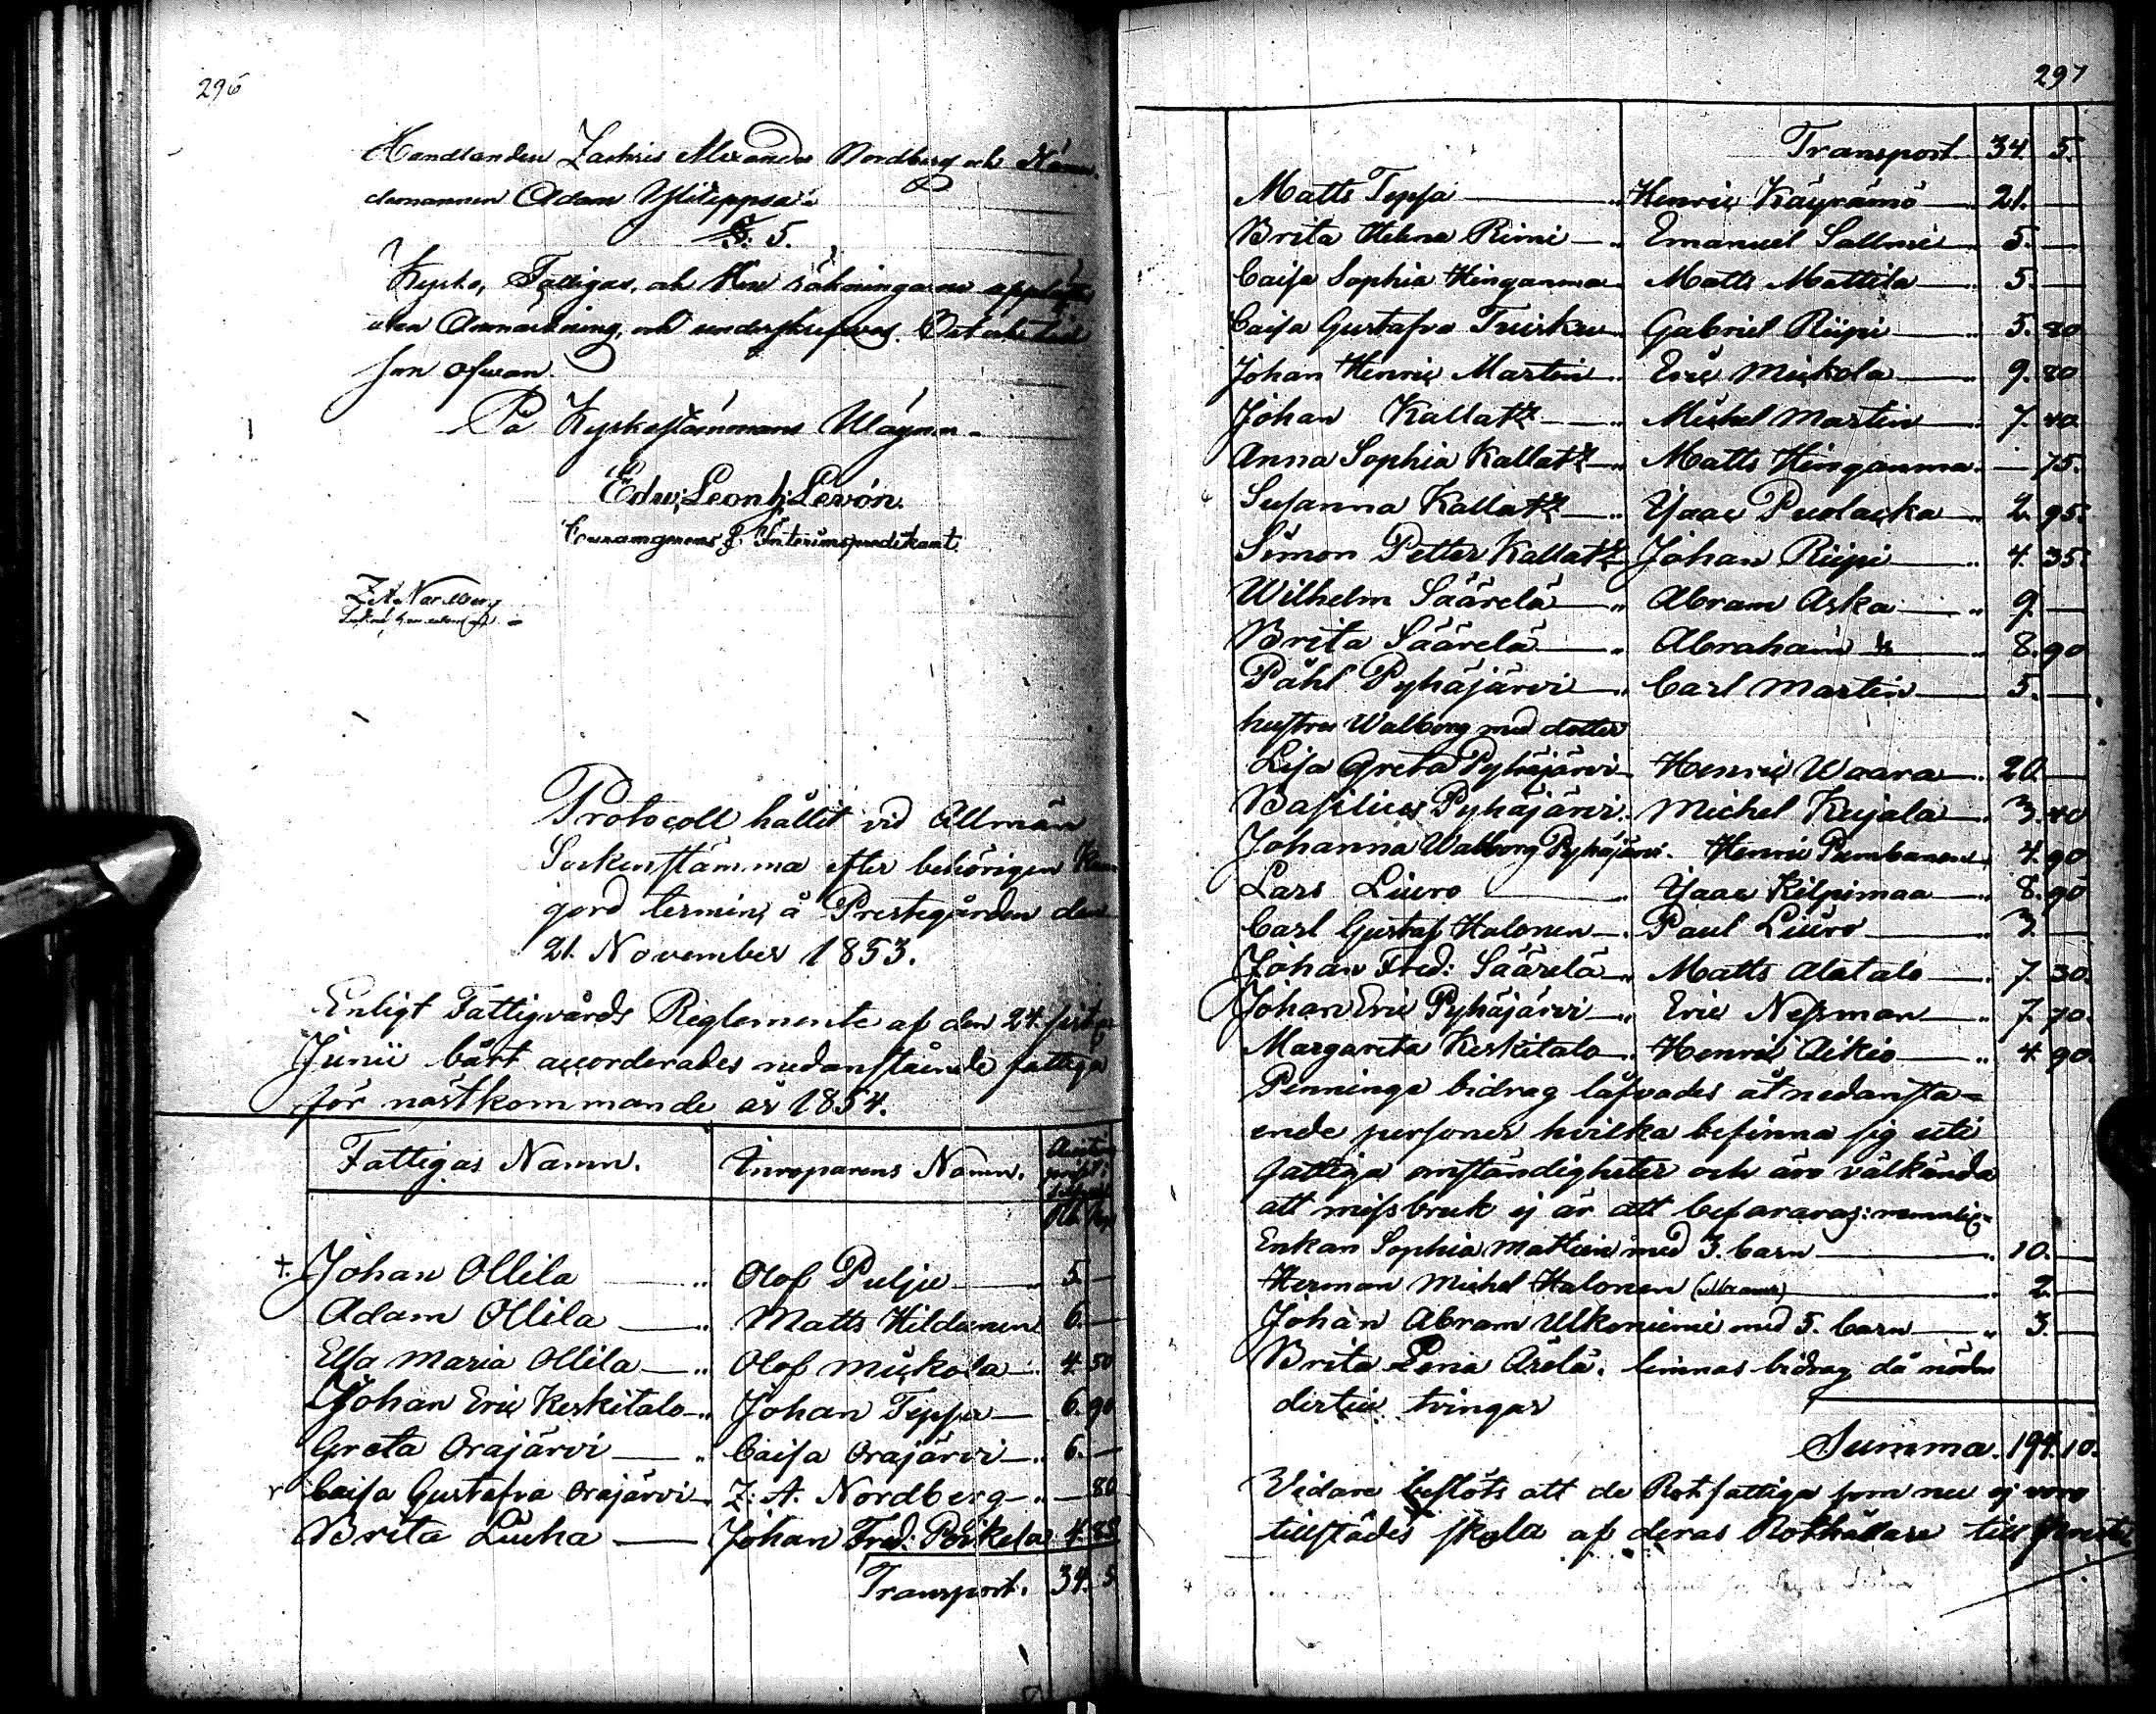 296
Handlanden Zachris Alexander Nordberg och Näm-
demannen Adam Yliteppsa.
§: 5.
Kyrko, Fattigas, och räkningarne
utan Anmärkning, och underskrefvos. Dat och
som ofwan.
På Kyrkostämmans Wägnar
Edv: Leonh: Levón
Interimspredikant
Z. A. Nordberg
Protocoll hållit vid Allmän
Sockenstämma efter behörigen
gjord termin, å Prestegården den
21. November 1853.
Enligt Fattigvårds Reglemente af den 24. sistl.
Junii bårt accorderades nedanstående fattiga
för nästkommande år 1854.
Fattigas Namn. Inroparens Namn.
†. Johan Ollila — " Olof Pulju — 5. —
Adam Ollila — " Matts Hildanen 6. —
Elsa Maria Ollila — " Olof Mickola — 4. 50
Johan Eric Keskitalo — " Johan Teppa — 6. 90
Greta Orajärvi — " Caisa Orajärvi — " 6. —
Caisa Gustafva Orajärvi — Z. A. Nordberg — " — 80
Brita Liuha — Johan Fred: Poikela 4. 85
Transport. 34. 5
297
Transport 34. 5.
Matts Teppa — " Henric Käyrämö — " 21. —
Brita Helena Rimi — " Emanuel Sallmi — " 5. —
Caisa Sophia Hinganma Matts Mattila — " 5. —
Caisa Gustafva Gabriel Riipi — " 5. 80
Johan Henric Martin — " Eric Mickola — " 9. 80
Johan Kallatz — " Michel Martin — 7. 40
Anna Sophia Kallatz — " Matts Hinganma. — 75.
Susanna Kallatz — " Isaac Puolacka — " 2. 95.
Simon Petter Kallatz Johan Riipi — " 4. 35.
Wilhelm Säärelä — " Abram Aska — " 9. —
Brita Säärelä — " Abraham — " 8. 90
Påhl Pyhäjärvi — " Carl Martin — 5. —
hustru Walborg med dotter
Lisa Greta Pyhäjärvi — Henric Waara — " 20. —
Basilius Pyhäjärvi. Michel Kujala — " 3. 40
Johanna Walborg Pyhäjärvi. Henric Pumbanen 4. 90
Lars Liuro — " Isaac Kilpimaa — " 8. 90
Carl Gustaf Halonen — " Paul Liuro — " 3. —
Johan Fred: Säärelä — " Matts Alatalo — " 7. 30.
Johan Eric Pyhäjärvi — " Eric Nessman — " 7. 70.
Margareta Keskitalo — " Henric Aikio — " 4. 90.
Penninge bidrag låfvades åt nedanstå-
ende personer hvilka befinna sig uti
fattiga omständigheter och äro välkända
att missbruk ej är att befararas: nemnlig:
Enkan Sophia Mathein med 3. barn — " 10. —
Herman Michel Halonen — " 2. —
Johan Abram Ulkoniemi med 5. barn — " 3. —
Brita Lena Ärälä. lemnas bidrag då
tvingar
Summa. 194. 10.
Vidare beslöts att de Rotfattiga som nu ej voro
tillstädes skola af deras Rothållare till